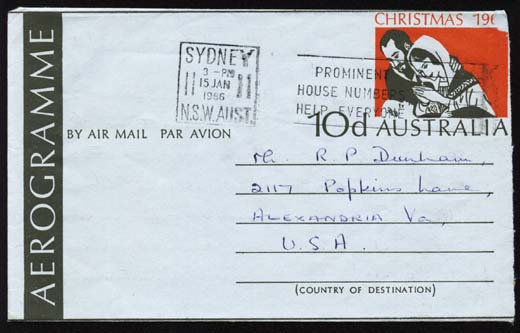 CHRISTMAS 196
AEROGRAMME
SYDNEY
3 - PM
15 JAN
1966
N.S.W. AUST.
PROMINENT
HOUSE NUMBERS
HELP EVERYONE
10d AUSTRALIA
BY AIR MAIL PAR AVION
Mr. R. P. Dunham,
2117 Popkins Lane,
ALEXANDRIA Va,
U.S.A.
(COUNTRY OF DESTINATION)